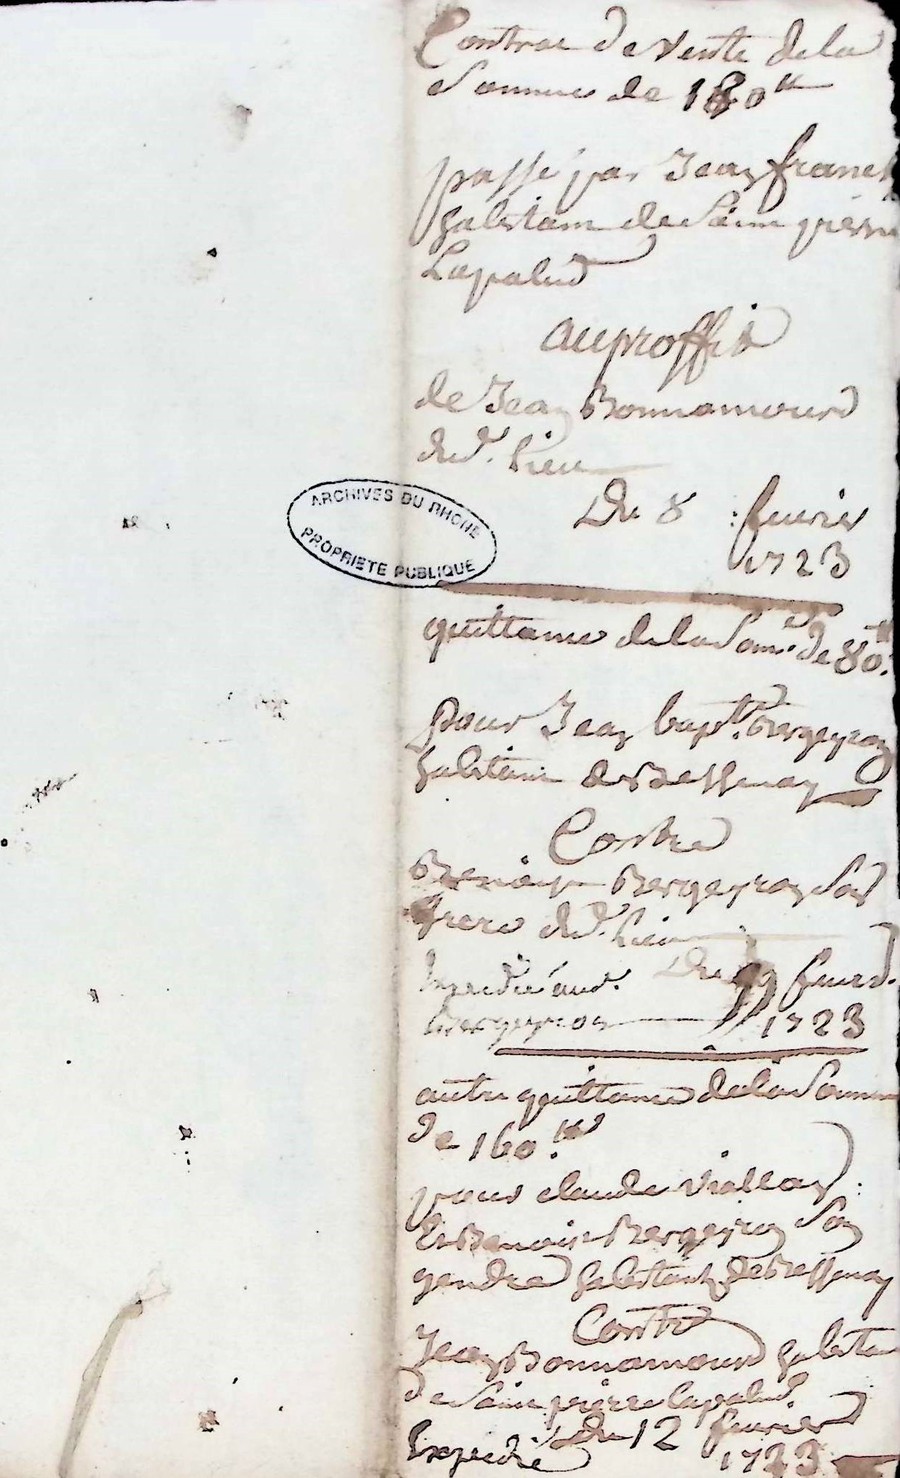 Contrac de Vente dela
Somme de 180ᵗᵗ
passé par Jean franc
habitant de Sainc pierre
Lapalud
au proffit
de Jean Bonnamourd
dud. lieu
Du 8 : fevrier
1723
ARCHIVES DU RHONE
PROPRIETE PUBLIQUE
quittance dela Som.ᵉ de 80.ᵗᵗ
pour Jean bapt.ᵗᵉ Bergeyron
habitant de Bessenay
Contre
Benoist Bergeyron Son
frere dud. lieu
Expedié aud. Du 9 fevr.
Bergeyron 1723
autre quittance dela Somme
de 160.ᵗᵗ
pour claude Viallon
Et Benoist Bergeyron Son
gendre habitants de Bessenay
Contre
Jean Bonnamourd habitan
de Sainc pierre lapalud
Du 12 fevrier
Expedié 1723